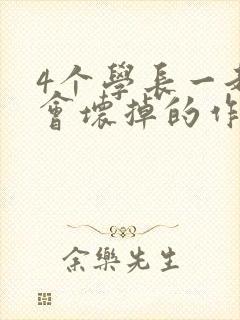 4个學長一
會壞掉的作
余樂先生